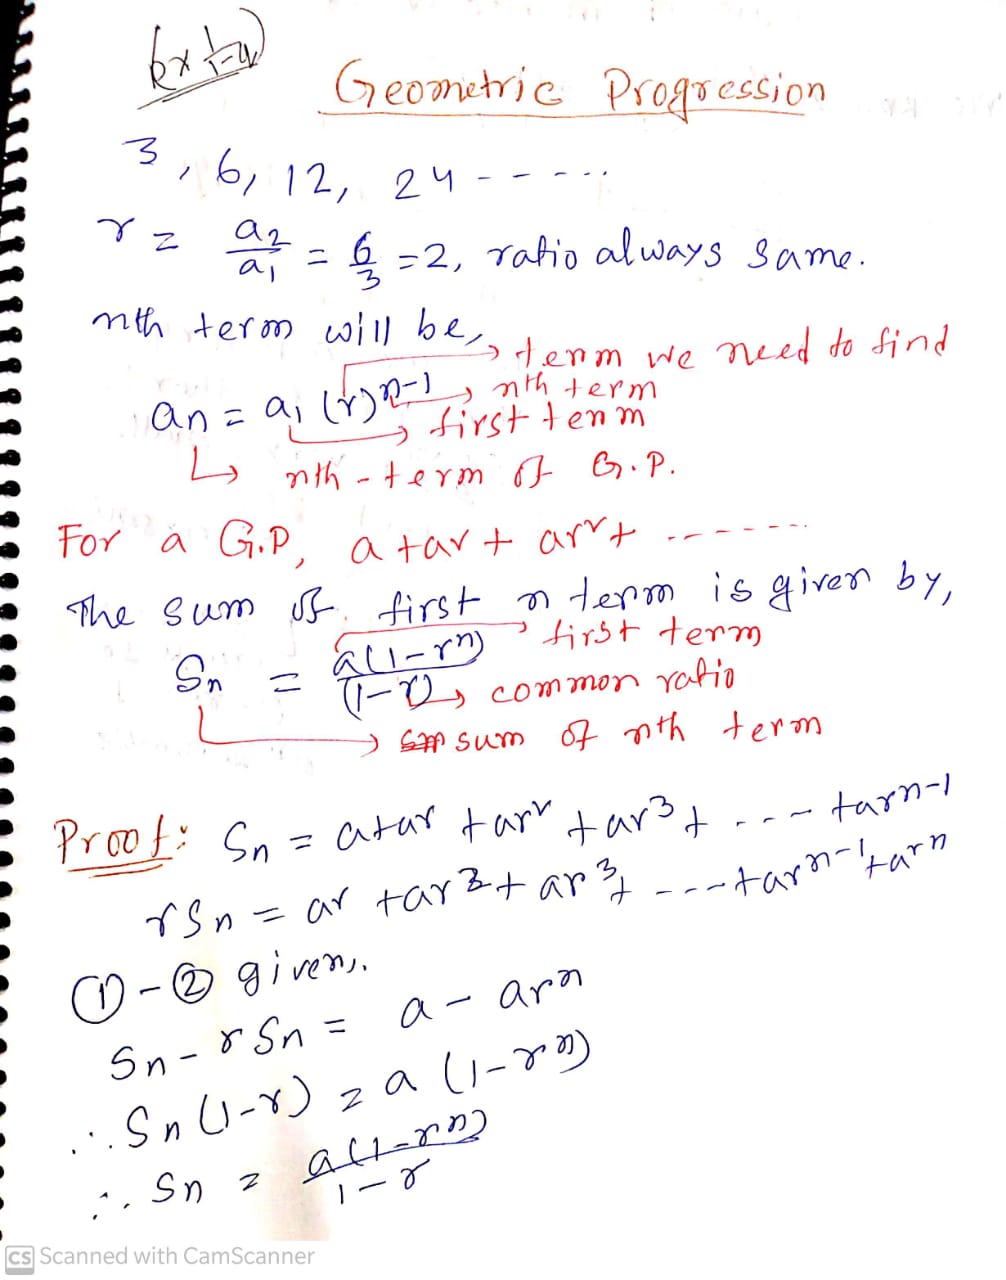 Geometric Progression
3, 6, 12, 24 - - - - -
r = a2/a1 = 6/3 = 2, ratio always same.
nth term will be,
→ term we need to find
an = a1 (r)^n-1 → nth term
→ first term
↳ nth - term of G.P.
For a G.P, a + ar + ar² + - - - - - -
The sum of first n term is given by,
Sn = a(1-r^n)/(1-r) → first term
→ common ratio
→ sum of nth term
Proof: Sn = a+ar +ar² +ar³+ - - - +ar^n-1
rSn = ar +ar²+ ar³+ - - - +ar^n-1+ar^n
①-② given,
Sn - rSn = a - ar^n
∴ Sn (1-r) = a (1-r^n)
∴ Sn = a(1-r^n)/1-r
CS Scanned with CamScanner